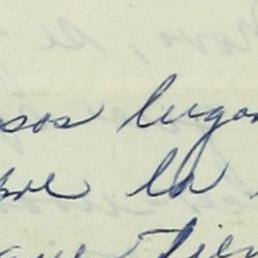 sos lugar
bre la
que tien